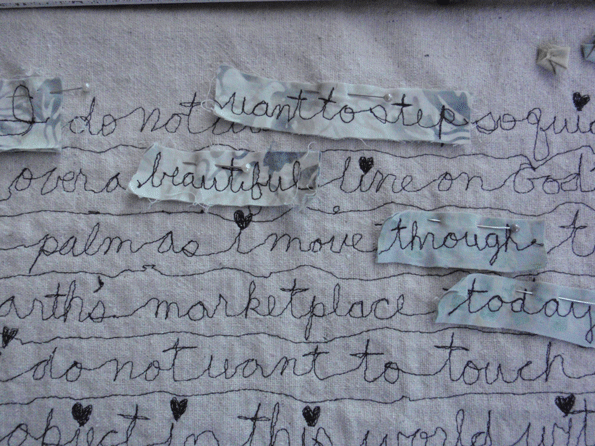 I do not want to step so quic
over a beautiful line on God's
palm as i move through t
arth's marketplace today
i do not want to touch
object in this world wit